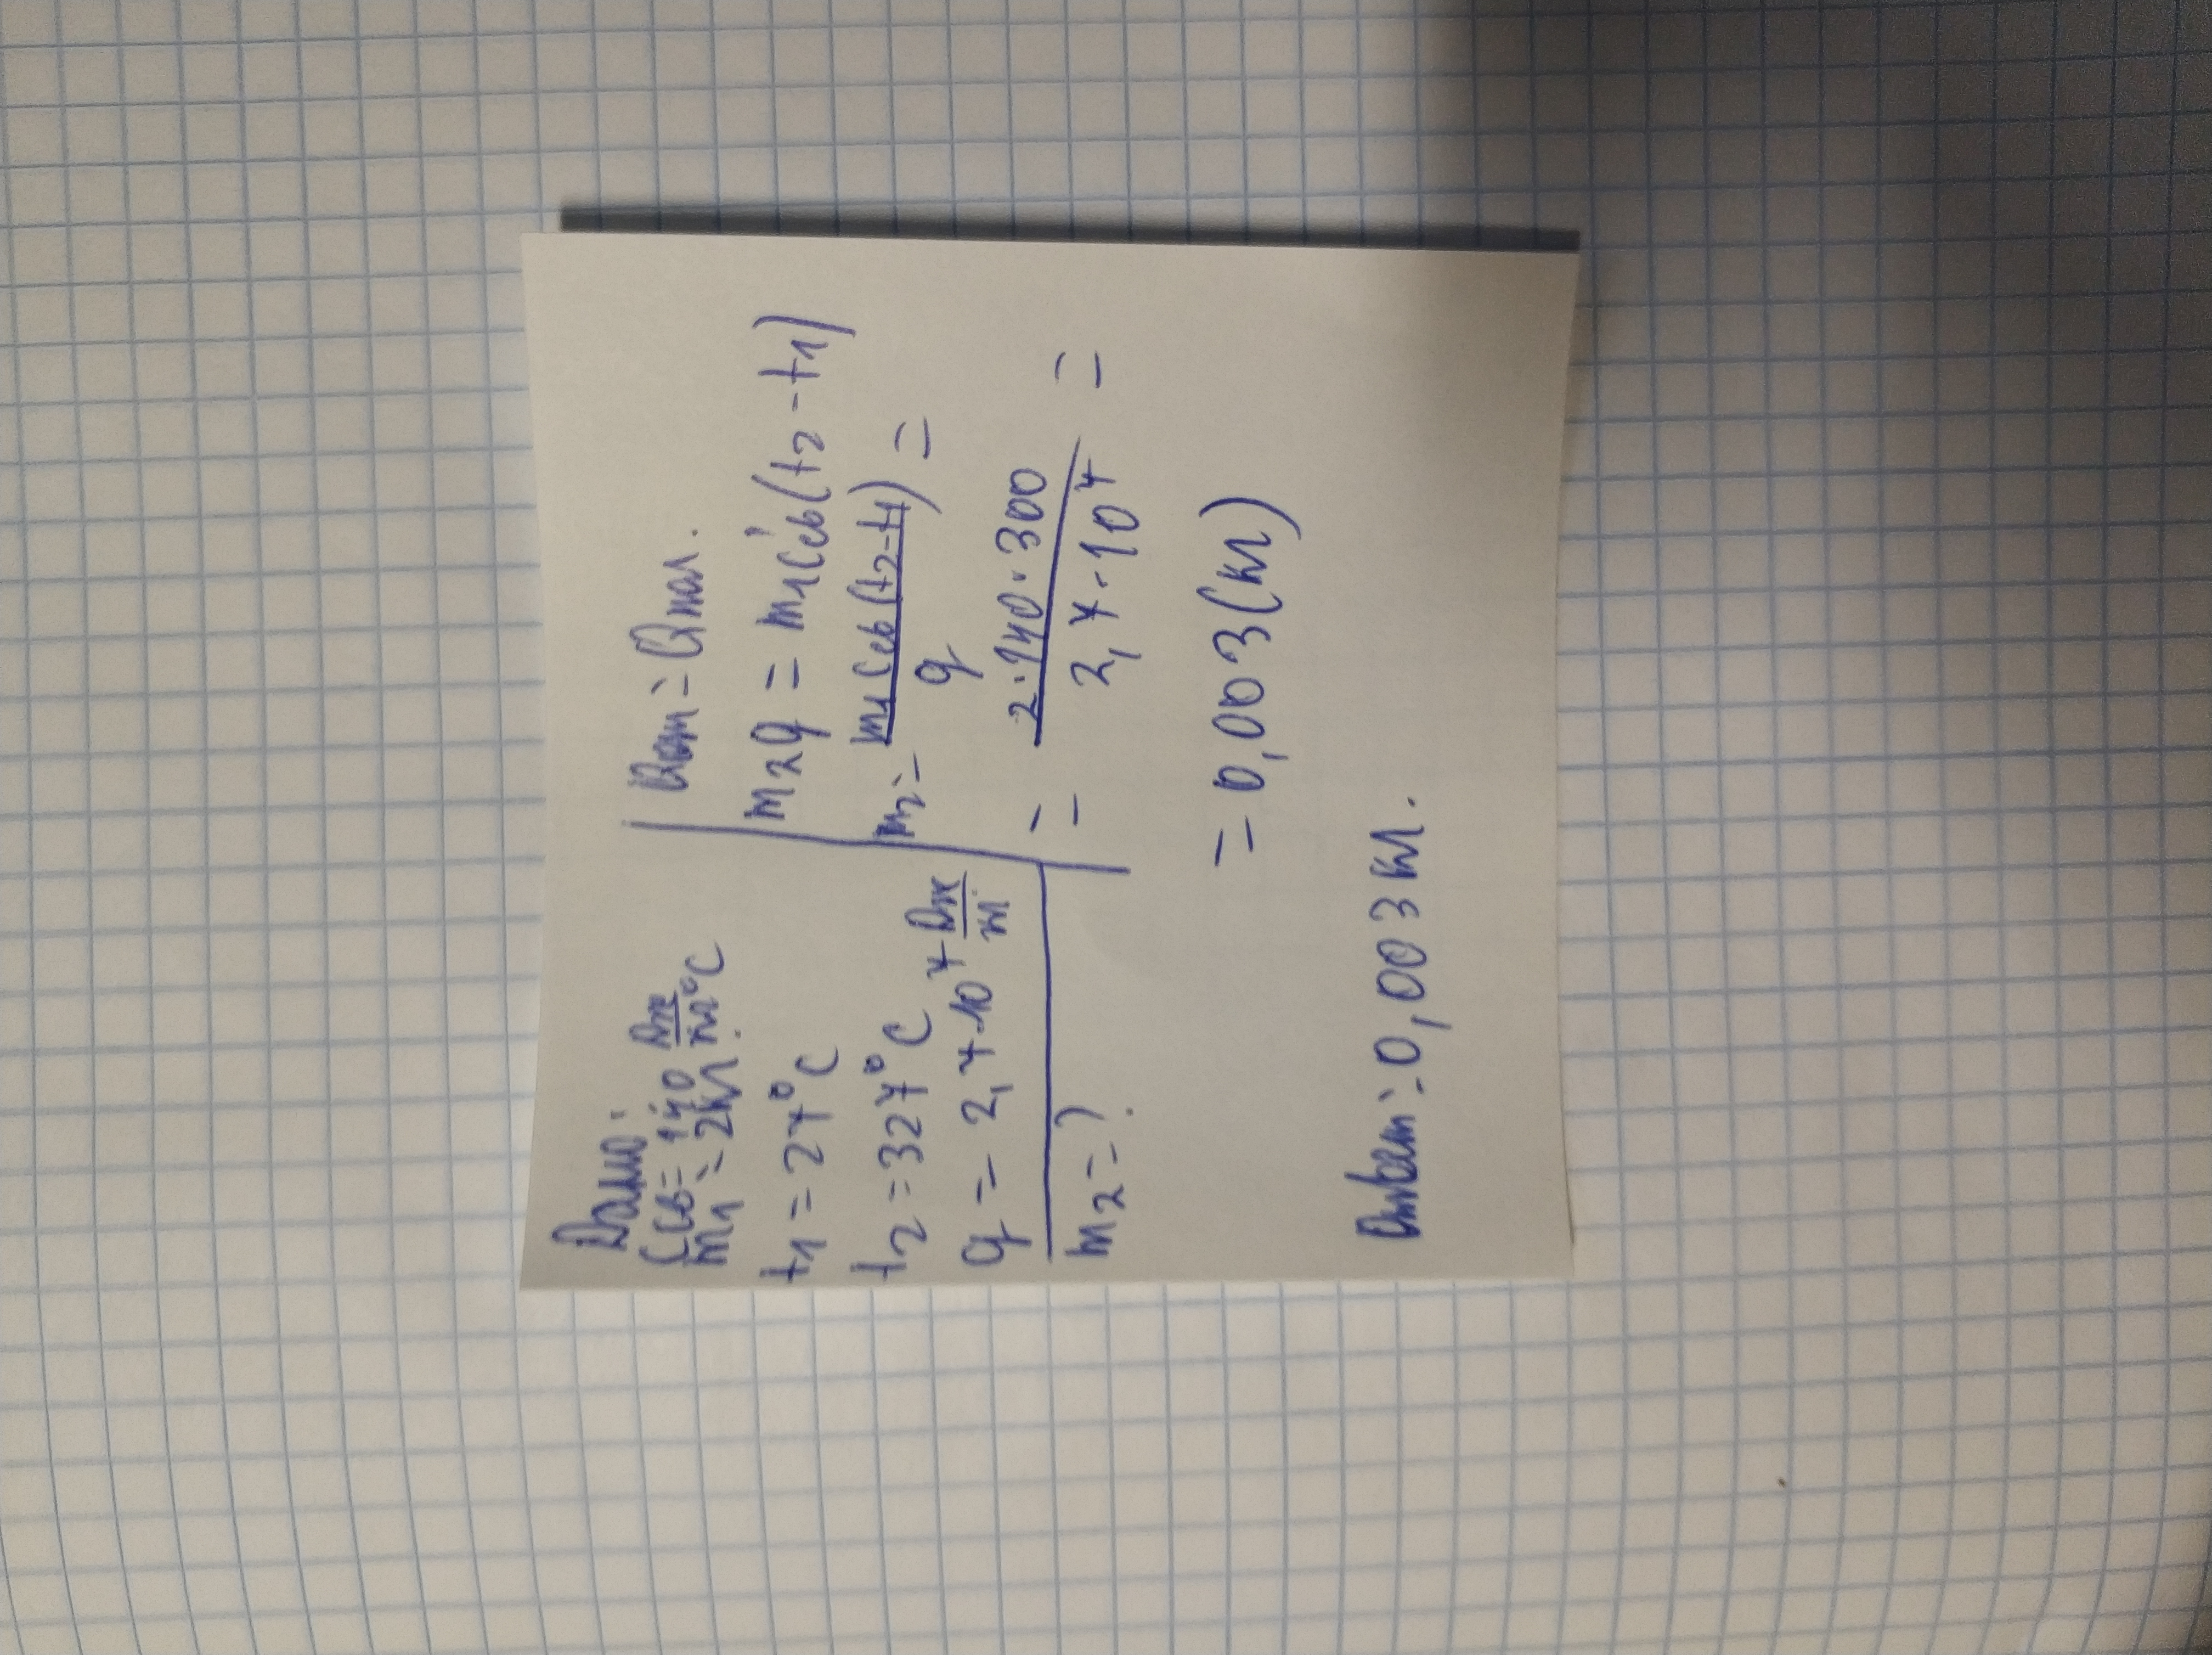 Дано:
Cсв = 140 Дж/кг°C
m1 = 2кг
t1 = 27°C
t2 = 327°C
q = 2,7·10^7 Дж/кг
m2 = ?
Qот = Qпол.
m2q = m1Cсв(t2-t1)
m2 = m1Cсв(t2-t1)/q =
= 2·140·300/2,7·10^7 =
= 0,003(кг)
Ответ: 0,003кг.